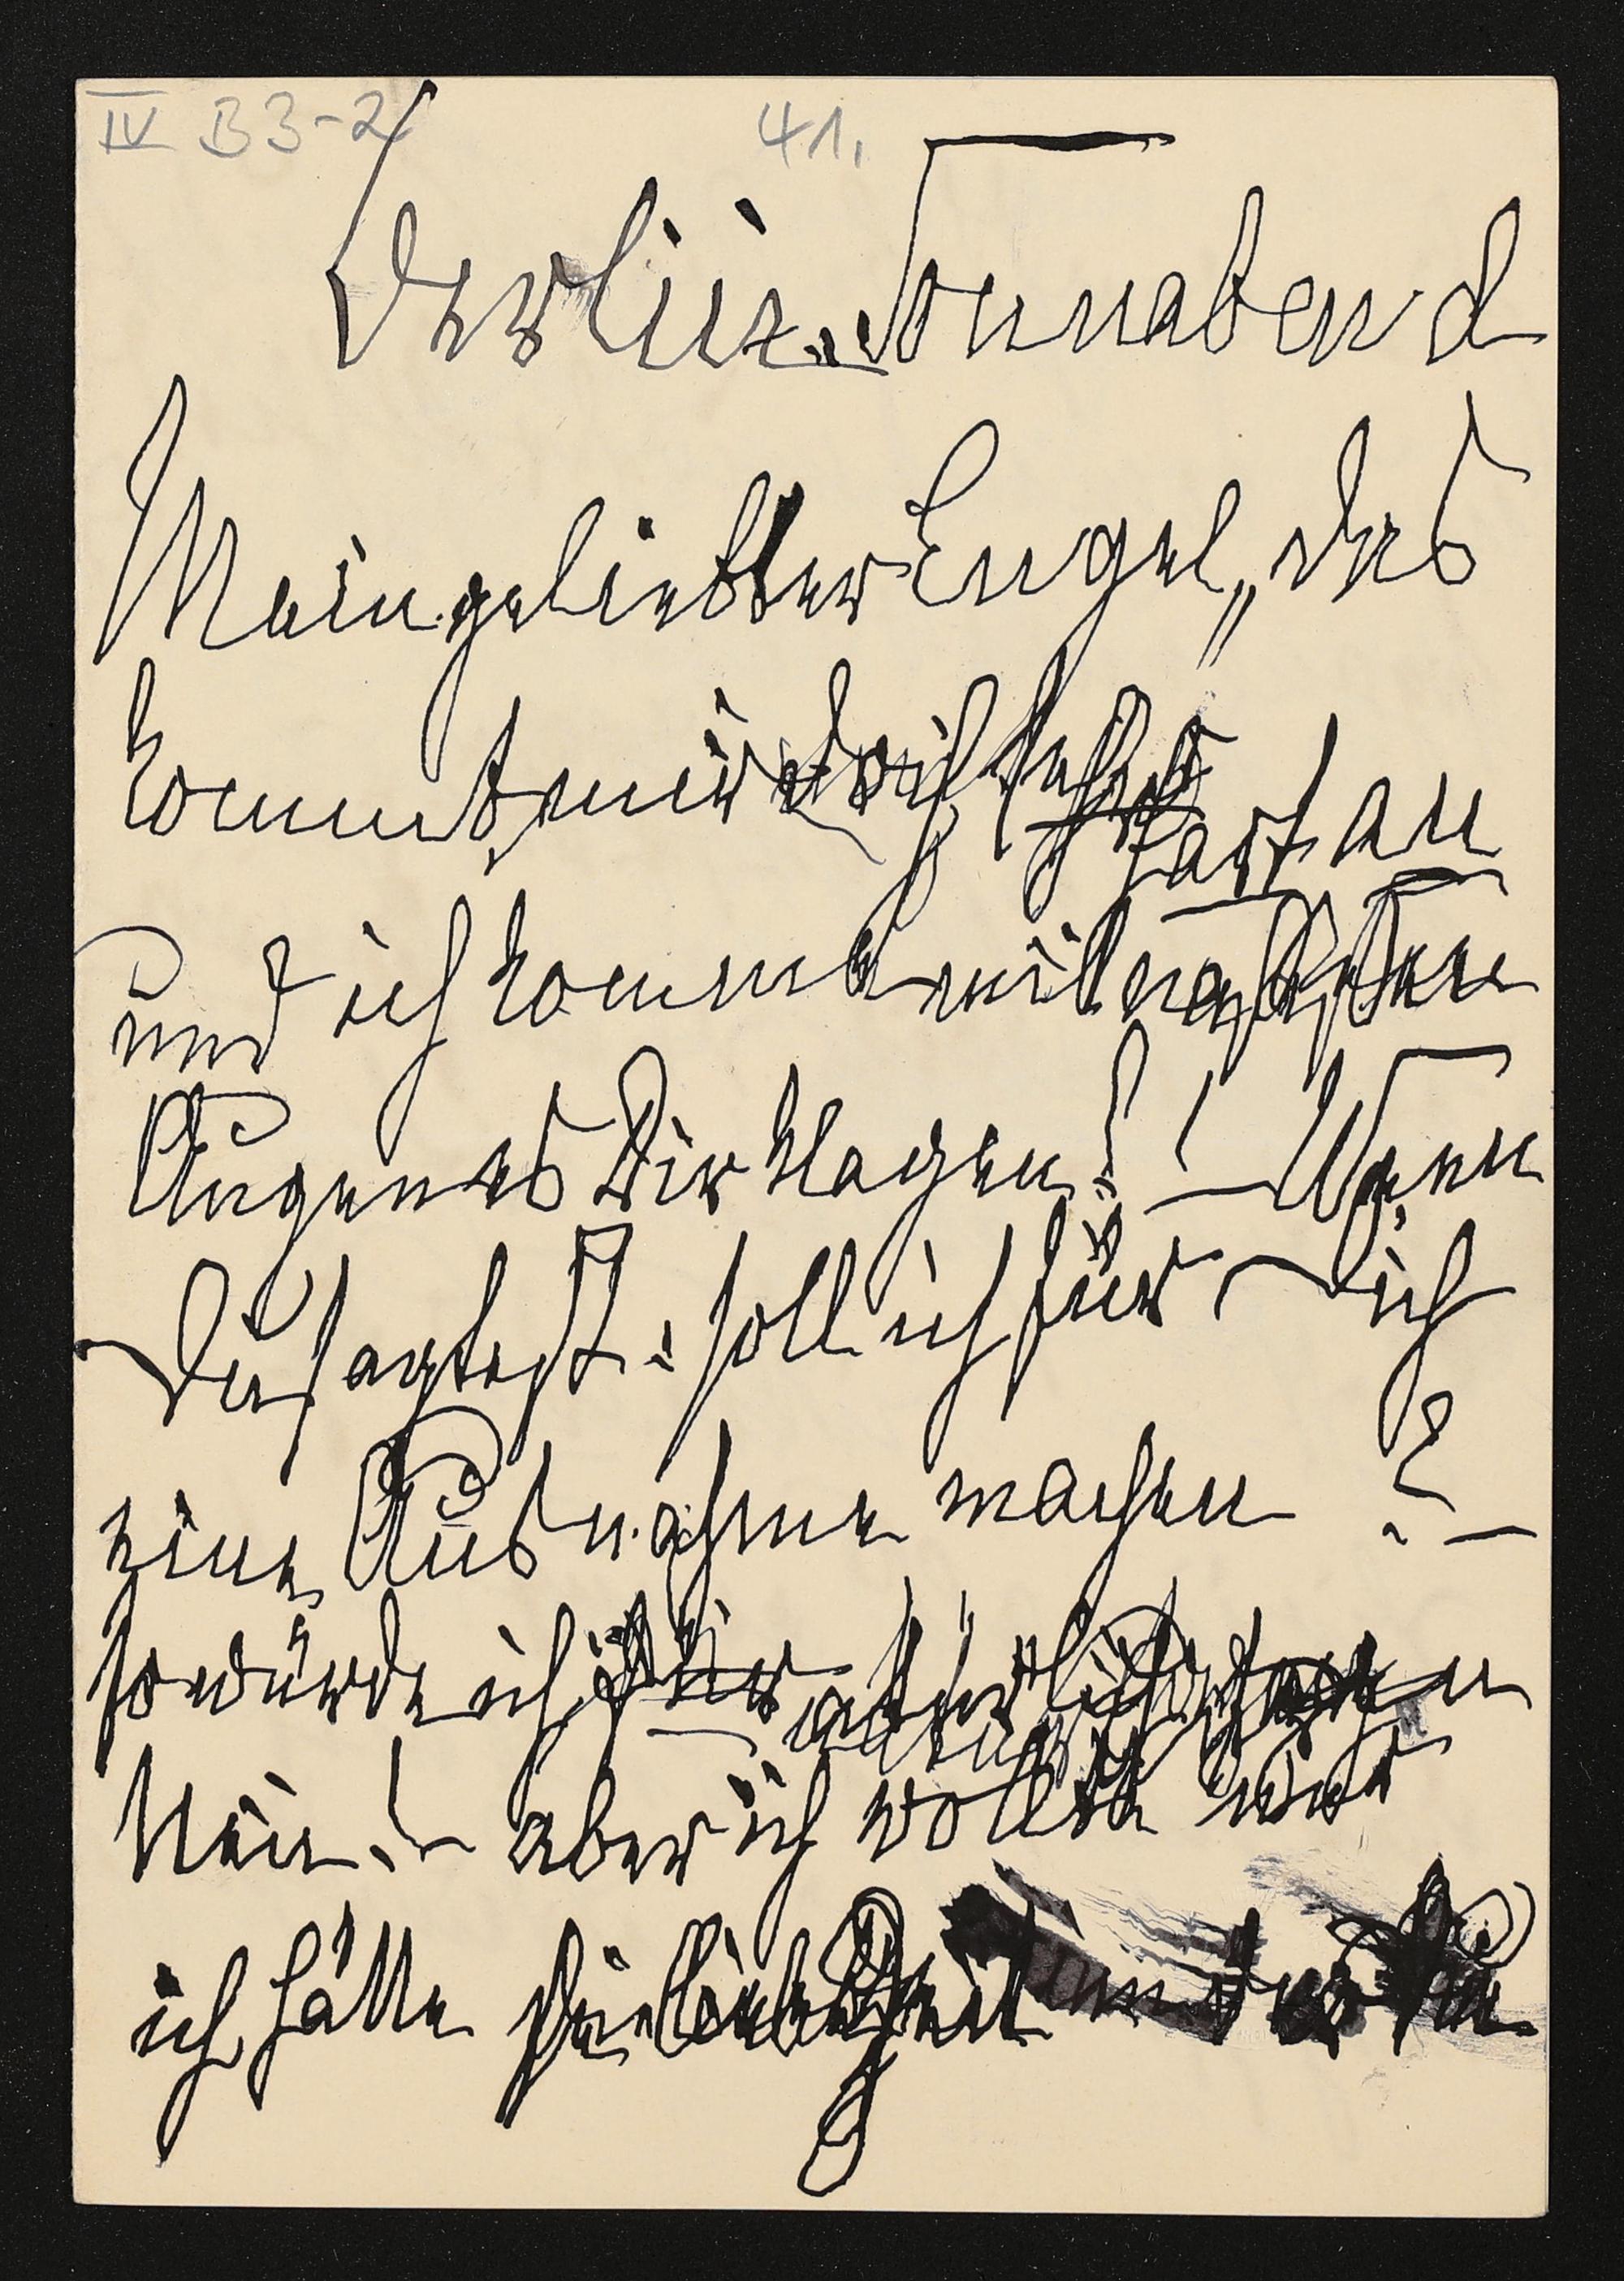 IV B 3-2 41.
Berlin. Sonnabend
Mein geliebter Engel, das
kommt mir doch sehr hart an
und ich komme mit nassen
Augen es Dir klagen! – Wenn
Du sagtest: soll ich für Dich
eine Ausnahme machen? –
so würde ich sagen
Nein! – aber ich wollte
ich hätte die